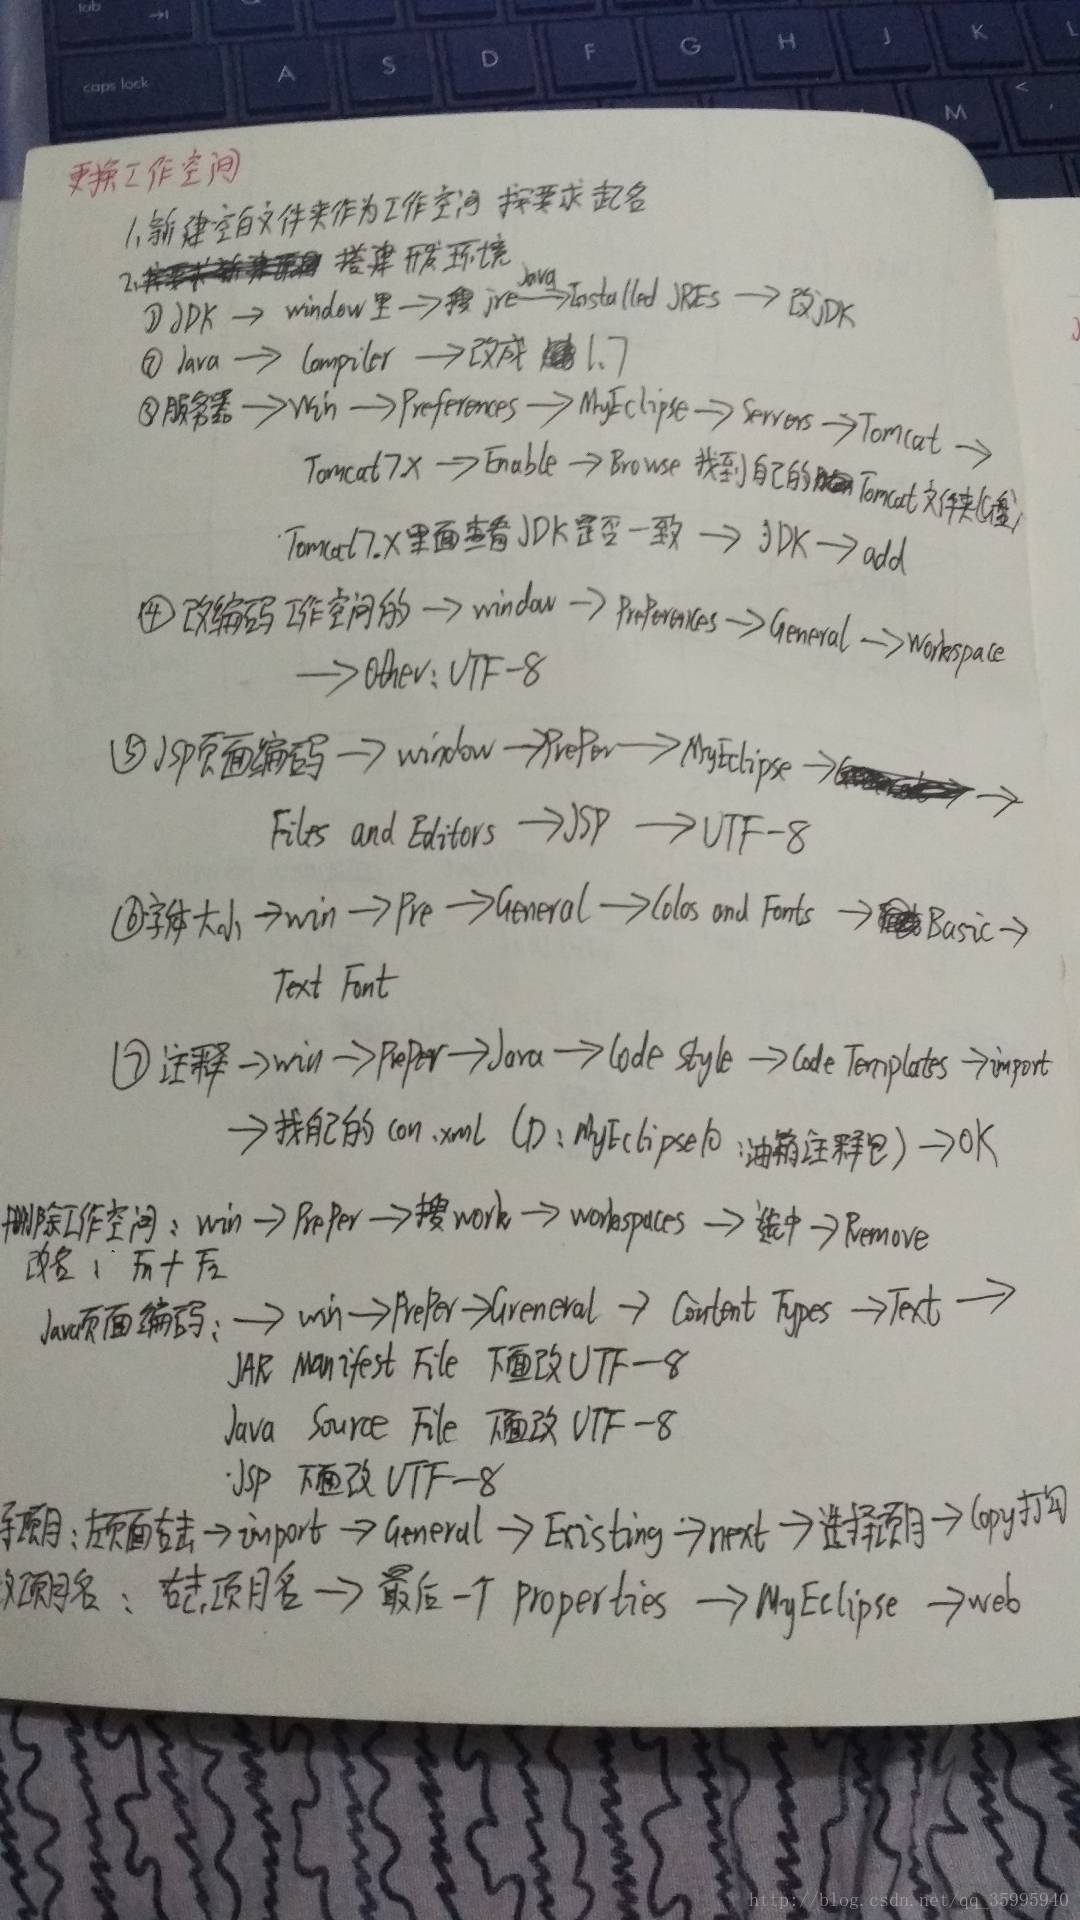 tab
caps lock A S D F G H J K L
M <
更换工作空间
1.新建空白文件夹作为工作空间 按要求起名
2. 搭建开发环境
① JDK → window里 → 搜 jre Java → Installed JREs → 改JDK
② Java → Compiler → 改成 1.7
③ 服务器 → Win → Preferences → MyEclipse → Servers → Tomcat →
Tomcat7.X → Enable → Browse 找到自己的 Tomcat文件夹
Tomcat7.X里面查看JDK是否一致 → JDK → add
④ 改编码 工作空间的 → window → Preferences → General → Workspace
→ Other: UTF-8
⑤ JSP页面编码 → window → PrePer → MyEclipse → →
Files and Editors → JSP → UTF-8
⑥ 字体大小 → win → Pre → General → Colos and Fonts → Basic →
Text Font
⑦ 注释 → win → PrePer → Java → Code Style → Code Templates → import
→ 找自己的 con.xml (D: MyEclipse10 :油箱注释包) → OK
删除工作空间: win → PrePer → 搜work → workspaces → 选中 → Remove
改名: Fn+F2
Java页面编码: → win → PrePer → Greneral → Content Types → Text →
JAR Manifest File 下面改UTF-8
Java Source File 下面改 UTF-8
JSP 下面改 UTF-8
导项目: 左页面右击 → import → General → Existing → next → 选择项目 → Copy打勾
改项目名: 右击项目名 → 最后一个 Properties → MyEclipse → web
http://blog.csdn.net/qq_35995940